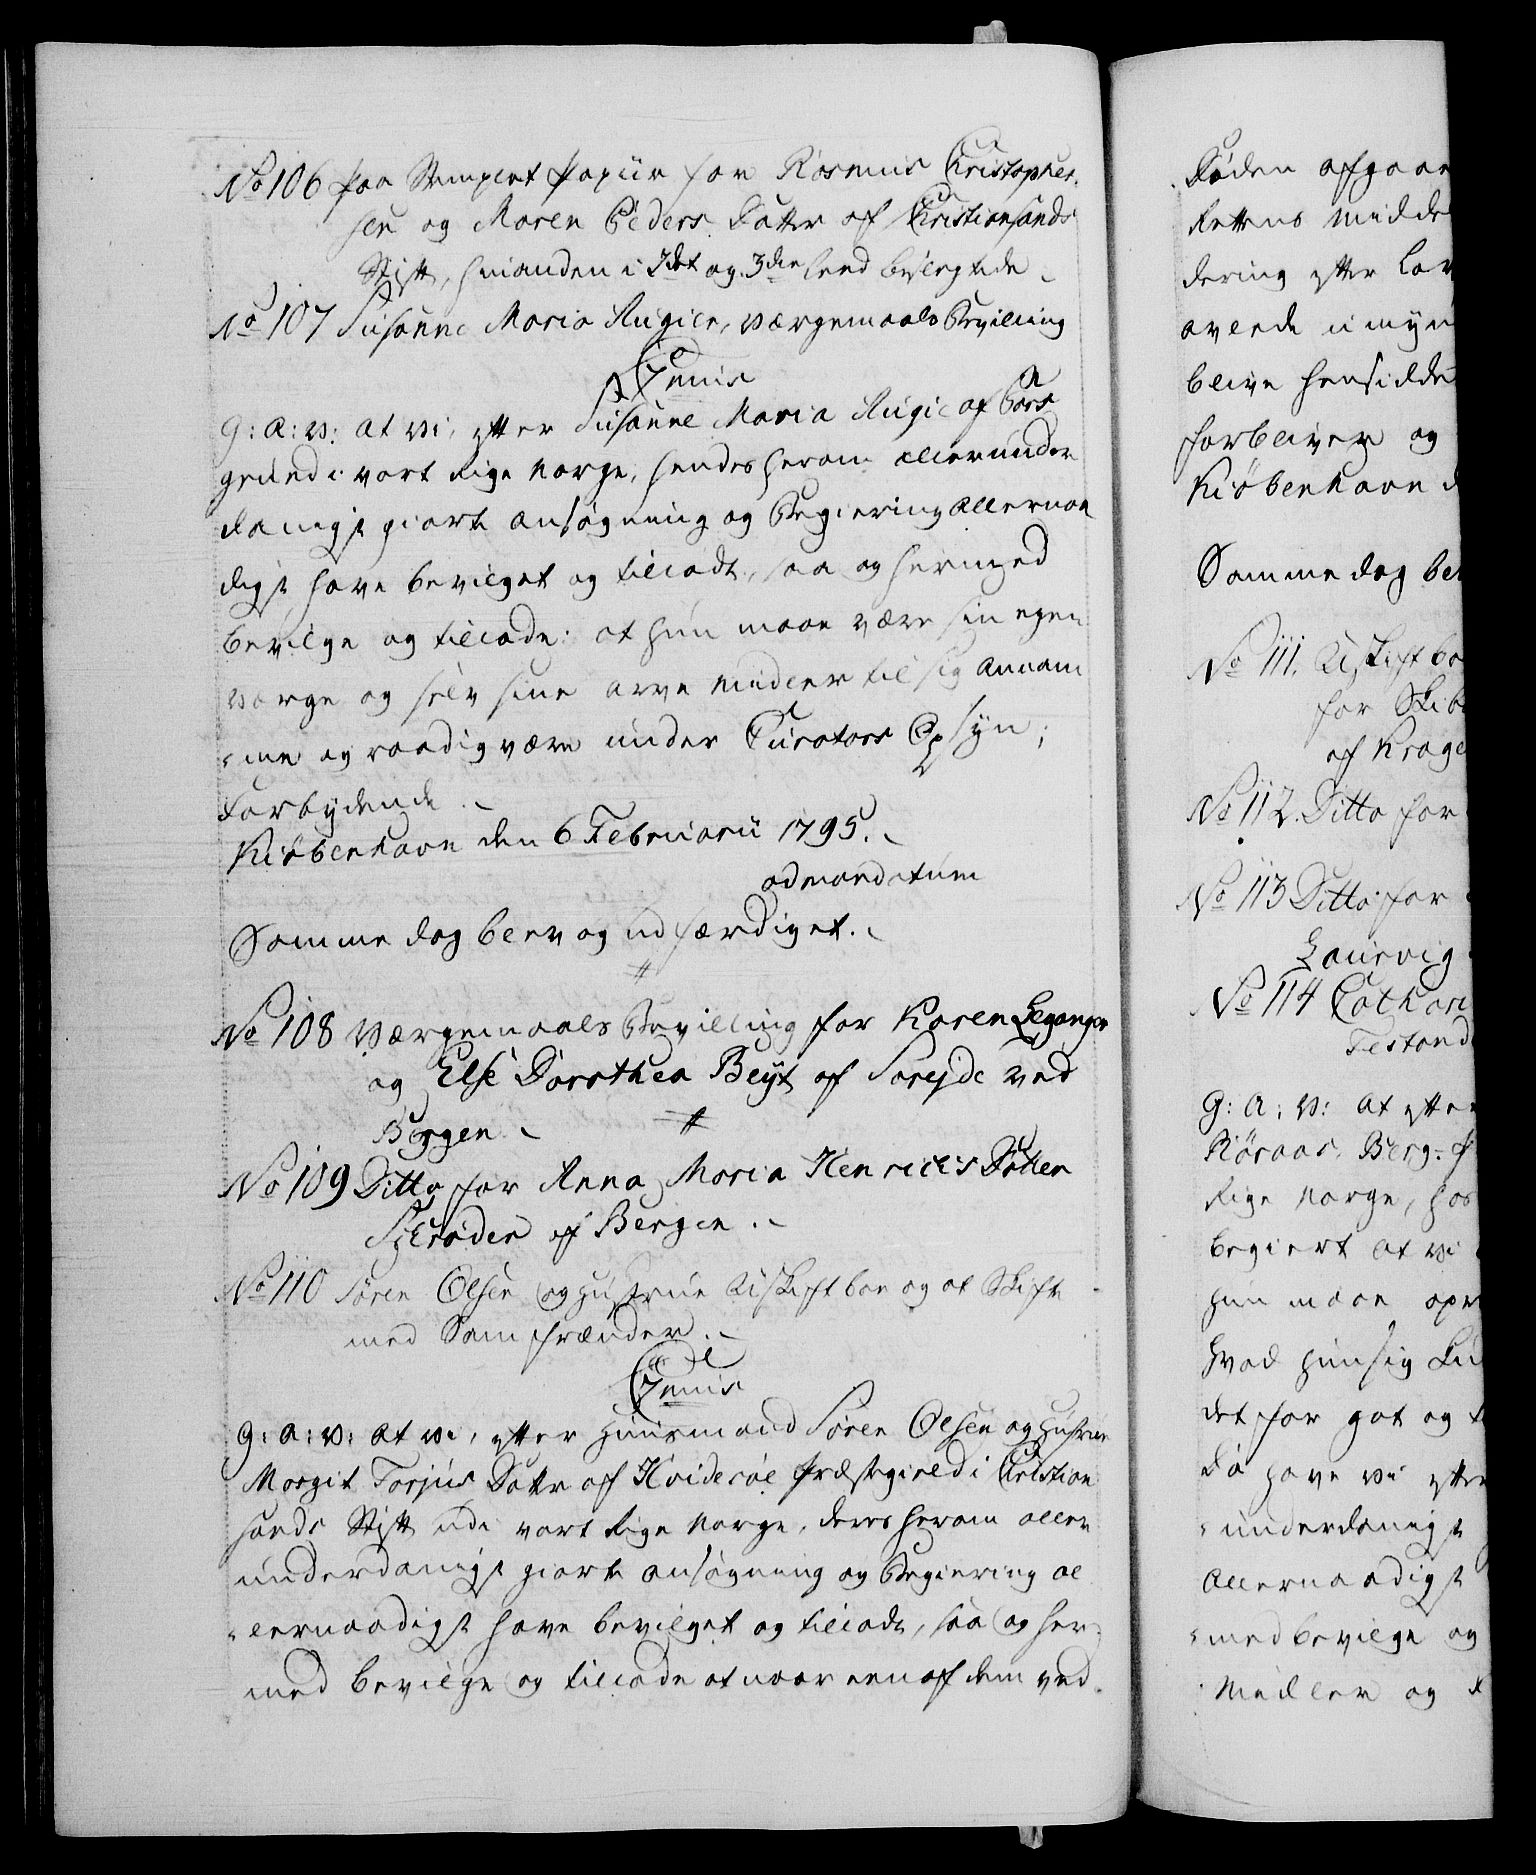 No 106 paa Stemplet Papiir for Rasmus Christopher-
sen og Maren Peders Datter af Christiansands
Stift, hinanden i 2det og 3die Leed beslegtede
No 107 Susanne Maria Augier, værgemaals Bevilling
C7enus
G: A: V: at vi, efter Susanne Maria Augie af Pors
grund i vort Rige Norge, hendes herom allerunder
danigst giorte ansøgning og Begiering allernaa
digst have bevilget og tilladt, saa og hermed
bevilge og tillade: at hun maae være sin egen
værge og selv sine arve Midler til sig annam
-me og raadig være under Curators Opsyn;
Forbydende
Kiøbenhavn den 6 Februarii 1795.
ad mandatum
Samme dag blev og udfærdiget.
No 108 Værgemaals Bevilling for Karen Legangen
og Else Dorothea Beyt af Sorejde ved
Bergen
No 109 Ditto for Anna Maria Henrichs Datter
Schrøder af Bergen
No 110 Søren Olsen og Hustrue Uskiftboe og at Skifte
med Samfrænder.
C7enus
G: A: V: at vi, efter Huusmand Søren Olsen og Hustrue
Margit Torjus Datter af Hvidesøe Præstegield i Christian
sands Stift udi vort Rige Norge, deres herom aller
underdanigst giorte ansøgning og Begiering al
-lernaadigst have bevilget og tilladt, saa og her-
med bevilge og tillade at naar een af dem ved
Døden afgaae
Rettens Midde
dering efter Lov
blive hensidde
forbliver og
Kiøbenhavn d
Samme dag ble
No 111. Uskiftbo
for Skib
af Krage
No 112. Ditto for
No 113 Ditto for
Laurvig
No 114 Cathari
Testand
G: A: V: at efter
Røraas Berg-
Rige Norge, hos
begiert at vi
hun maae opr
hvad hun sig
det for got og
da have vi efter
-underdanigst
Allernaadigst
-med bevilge og
Midler og